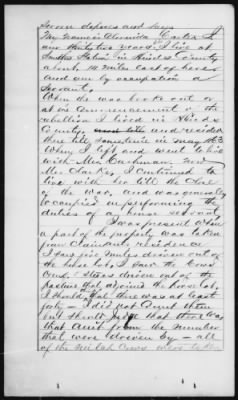 Sworn deposes and says
My name is Almeida Carter I
am thirty two years I live at
Smiths Station in Hinds County
about 14 miles East of here
and am by occupation a
Servant.
When the war broke out or
at the commencement of the
rebellion I lived in Hinds
County, and resided
there till sometime in May 1863
When I left and went to live
with Mrs Cushman. Now
Mrs Clarke, I continued to
live with her till the close
of the war, and was generally
occupied in performing the
duties of a house servant,
I was present when
a part of the property was taken
from Claimants residence
I saw five mules driven out of
the horse lot, I saw the Cows
driven out of the
pasture that adjoined the horse lot,
I should that there was at least
forty - I did not count them
but should judge that there was
that amt from the number
that were driven by - all
of the Milch Cows were taken